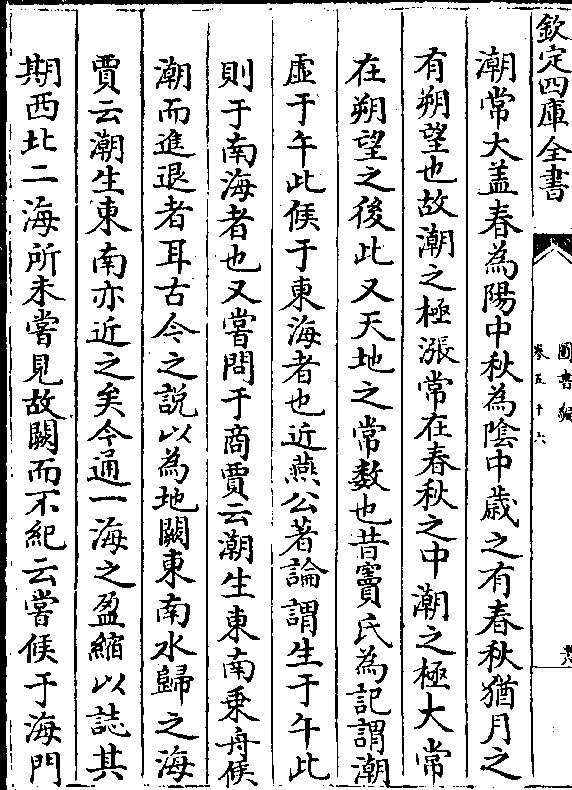 欽定四庫全書
圖書編
卷五十六
潮常大蓋春為陽中秋為陰中歲之有春秋猶月之
有朔望也故潮之極漲常在春秋之中潮之極大常
在朔望之後此又天地之常数也昔竇氏為記謂潮
虛于午此候于東海者也近燕公著論謂生于午此
則于南海者也又嘗問于商賈云潮生東南乘舟候
潮而進退者耳古今之說以為地闕東南水歸之海
賈云潮生東南亦近之矣今通一海之盈縮以誌其
期西北二海所未嘗見故闕而不紀云嘗候于海門